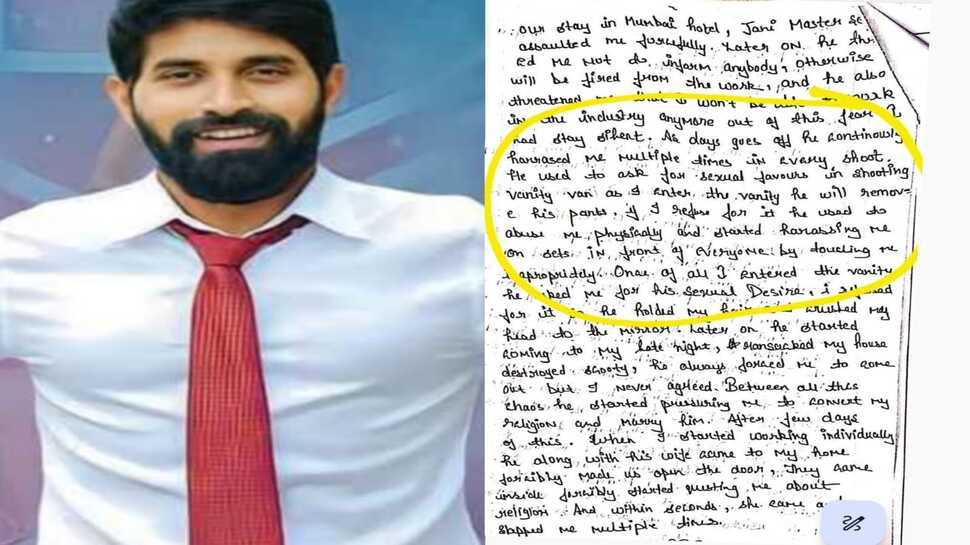 our stay in Mumbai hotel, Jani Master se
assaulted me forcefully. Later on he thr
ed me not do inform anybody, otherwise
will be fired from the work, and he also
threatened won't be work
in the industry anymore out of this fear I
had stay silent. As days goes off he continously
harrased me multiple times in every shoot.
He used to ask for sexual favours in shooting
vanity van as I enter the vanity he will remov-
e his pants. if I refuse for it he used to
abuse me physically and started harassing me
on sets in front of everyone by touching me
inapropriately. Once of all I entered the vanity
he asked me for his sexual Desire, i refused
for it he holded my hair my
head to the mirror. Later on he started
coming to my late night, my house
destroyed scooty, he always forced me to come
out but I never agreed. Between all this
chaos he started pressuring me to convert my
religion and marry him. After few days
of this. When I started working individually
he along with his wife came to my home
forcibly made us open the door, They came
inside forcibly started me about
religion. And within seconds, she came
slapped me multiple times.